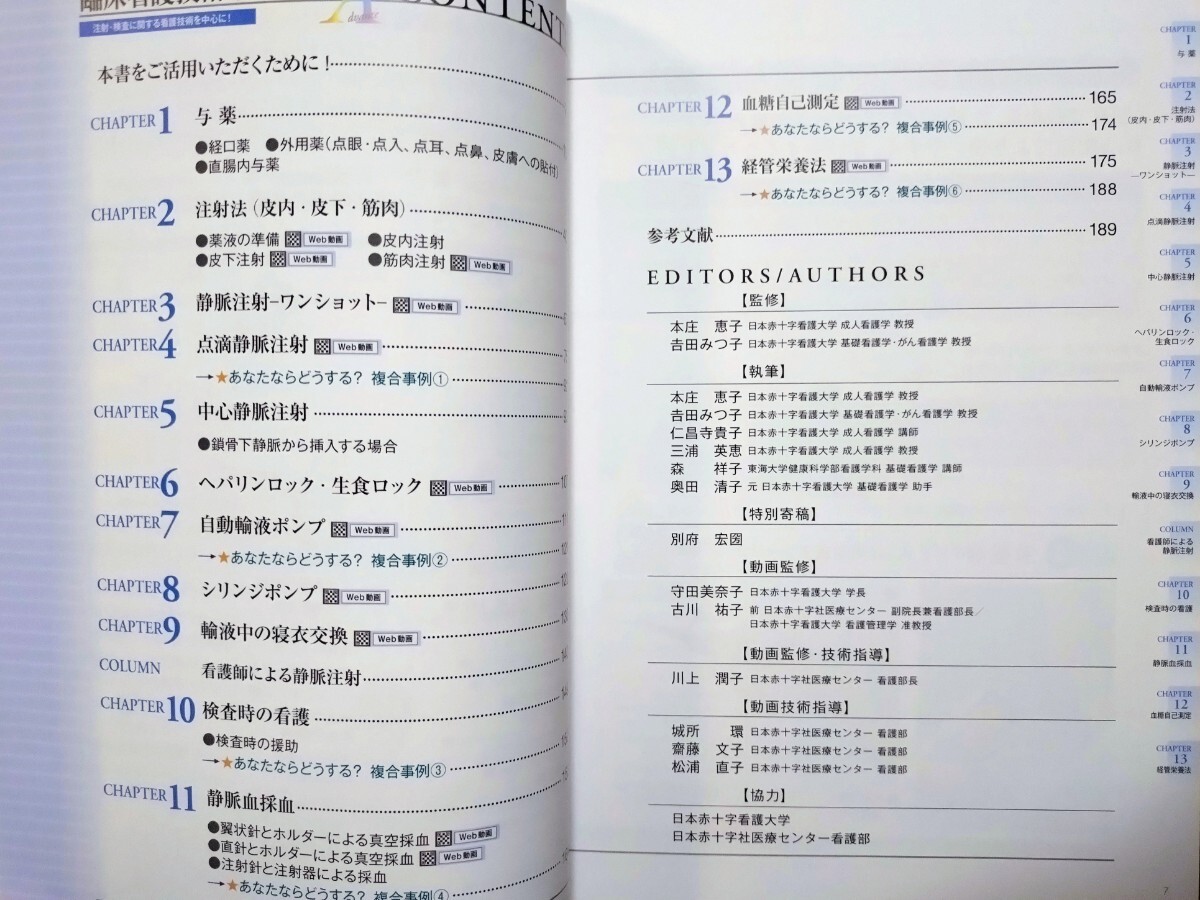 注射・検査に関する看護技術を中心に!
Advance
CONTENT
本書をご活用いただくために!
CHAPTER1 与薬
●経口薬 ●外用薬(点眼・点入、点耳、点鼻、皮膚への貼付)
●直腸内与薬
CHAPTER2 注射法(皮内・皮下・筋肉)
●薬液の準備 Web動画 ●皮内注射
●皮下注射 Web動画 ●筋肉注射 Web動画
CHAPTER3 静脈注射-ワンショット- Web動画
CHAPTER4 点滴静脈注射 Web動画
→★あなたならどうする? 複合事例①
CHAPTER5 中心静脈注射
●鎖骨下静脈から挿入する場合
CHAPTER6 ヘパリンロック・生食ロック Web動画
CHAPTER7 自動輸液ポンプ Web動画
→★あなたならどうする? 複合事例②
CHAPTER8 シリンジポンプ Web動画
CHAPTER9 輸液中の寝衣交換 Web動画
COLUMN 看護師による静脈注射
CHAPTER10 検査時の看護
●検査時の援助
→★あなたならどうする? 複合事例③
CHAPTER11 静脈血採血
●翼状針とホルダーによる真空採血 Web動画
●直針とホルダーによる真空採血 Web動画
●注射針と注射器による採血
→★あなたならどうする? 複合事例④
CHAPTER12 血糖自己測定 Web動画 165
→★あなたならどうする? 複合事例⑤ 174
CHAPTER13 経管栄養法 Web動画 175
→★あなたならどうする? 複合事例⑥ 188
参考文献 189
EDITORS/AUTHORS
【監修】
本庄 恵子 日本赤十字看護大学 成人看護学 教授
𠮷田みつ子 日本赤十字看護大学 基礎看護学・がん看護学 教授
【執筆】
本庄 恵子 日本赤十字看護大学 成人看護学 教授
𠮷田みつ子 日本赤十字看護大学 基礎看護学・がん看護学 教授
仁昌寺貴子 日本赤十字看護大学 成人看護学 講師
三浦 英恵 日本赤十字看護大学 成人看護学 教授
森 祥子 東海大学健康科学部看護学科 基礎看護学 講師
奥田 清子 元 日本赤十字看護大学 基礎看護学 助手
【特別寄稿】
別府 宏圀
【動画監修】
守田美奈子 日本赤十字看護大学 学長
古川 祐子 前 日本赤十字社医療センター 副院長兼看護部長/
日本赤十字看護大学 看護管理学 准教授
【動画監修・技術指導】
川上 潤子 日本赤十字社医療センター 看護部長
【動画技術指導】
城所 環 日本赤十字社医療センター 看護部
齋藤 文子 日本赤十字社医療センター 看護部
松浦 直子 日本赤十字社医療センター 看護部
【協力】
日本赤十字看護大学
日本赤十字社医療センター看護部
CHAPTER
1
与薬
CHAPTER
2
注射法
(皮内・皮下・筋肉)
CHAPTER
3
静脈注射
―ワンショット―
CHAPTER
4
点滴静脈注射
CHAPTER
5
中心静脈注射
CHAPTER
6
ヘパリンロック・
生食ロック
CHAPTER
7
自動輸液ポンプ
CHAPTER
8
シリンジポンプ
CHAPTER
9
輸液中の寝衣交換
COLUMN
看護師による
静脈注射
CHAPTER
10
検査時の看護
CHAPTER
11
静脈血採血
CHAPTER
12
血糖自己測定
CHAPTER
13
経管栄養法
7